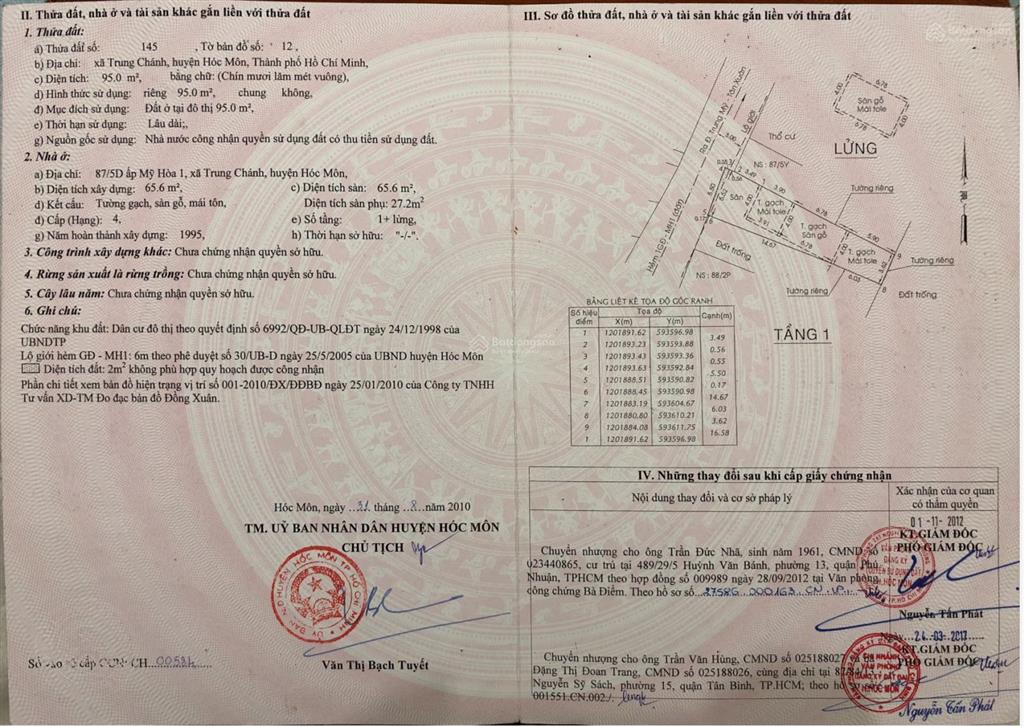 II. Thửa đất, nhà ở và tài sản khác gắn liền với thửa đất
1. Thửa đất:
a) Thửa đất số: 145 , Tờ bản đồ số: 12 ,
b) Địa chỉ: xã Trung Chánh, huyện Hóc Môn, Thành phố Hồ Chí Minh,
c) Diện tích: 95.0 m², bằng chữ: (Chín mươi lăm mét vuông),
d) Hình thức sử dụng: riêng 95.0 m², chung không,
đ) Mục đích sử dụng: Đất ở tại đô thị 95.0 m²,
e) Thời hạn sử dụng: Lâu dài;,
g) Nguồn gốc sử dụng: Nhà nước công nhận quyền sử dụng đất có thu tiền sử dụng đất.
2. Nhà ở:
a) Địa chỉ: 87/5D ấp Mỹ Hòa 1, xã Trung Chánh, huyện Hóc Môn,
b) Diện tích xây dựng: 65.6 m², c) Diện tích sàn: 65.6 m²,
d) Kết cấu: Tường gạch, sàn gỗ, mái tôn, Diện tích sàn phụ: 27.2m²
đ) Cấp (Hạng): 4, e) Số tầng: 1+ lửng,
g) Năm hoàn thành xây dựng: 1995, h) Thời hạn sở hữu: "-/-".
3. Công trình xây dựng khác: Chưa chứng nhận quyền sở hữu.
4. Rừng sản xuất là rừng trồng: Chưa chứng nhận quyền sở hữu.
5. Cây lâu năm: Chưa chứng nhận quyền sở hữu.
6. Ghi chú:
Chức năng khu đất: Dân cư đô thị theo quyết định số 6992/QĐ-UB-QLĐT ngày 24/12/1998 của
UBNDTP
Lộ giới hẻm GĐ - MH1: 6m theo phê duyệt số 30/UB-D ngày 25/5/2005 của UBND huyện Hóc Môn
Diện tích đất: 2m² không phù hợp quy hoạch được công nhận
Phần chi tiết xem bản đồ hiện trạng vị trí số 001-2010/ĐX/ĐĐBĐ ngày 25/01/2010 của Công ty TNHH
Tư vấn XD-TM Đo đạc bản đồ Đồng Xuân.
Hóc Môn, ngày 31 tháng 8 năm 2010
TM. UỶ BAN NHÂN DÂN HUYỆN HÓC MÔN
CHỦ TỊCH
Văn Thị Bạch Tuyết
III. Sơ đồ thửa đất, nhà ở và tài sản khác gắn liền với thửa đất
Ra Đ. Trung Mỹ - Tân Xuân
Lộ giới
3.00
Thổ cư
NS : 87/5Y
6.78
4.00
Sàn gỗ
Mái tole
4.00
6.78
LỬNG
Tường riêng
3.49
3.90
Sân
T. gạch
Mái tole
6.78
T. gạch
Sàn gỗ
5.90
T. gạch
Mái tole
3.62
Tường riêng
Hẻm 1GĐ - MH1 (đđn)
Đất trống
14.67
6.03
NS : 88/2P
Tường riêng
Đất trống
TẦNG 1
BẢNG LIỆT KÊ TỌA ĐỘ GÓC RANH
Số hiệu điểm Tọa độ Cạnh(m)
X(m) Y(m)
1 1201891.62 593596.98
3.49
2 1201893.23 593593.88
0.56
3 1201893.43 593593.36
0.55
4 1201893.63 593592.84
5.50
5 1201888.51 593590.82
0.17
6 1201888.45 593590.98
14.67
7 1201883.19 593604.67
6.03
8 1201880.80 593610.21
3.62
9 1201884.08 593611.75
16.58
1 1201891.62 593596.98
IV. Những thay đổi sau khi cấp giấy chứng nhận
Nội dung thay đổi và cơ sở pháp lý
Xác nhận của cơ quan
có thẩm quyền
01-11-2012
KT.GIÁM ĐỐC
PHÓ GIÁM ĐỐC
Chuyển nhượng cho ông Trần Đức Nhã, sinh năm 1961, CMND số
023440865, cư trú tại 489/29/5 Huỳnh Văn Bánh, phường 13, quận Phú
Nhuận, TPHCM theo hợp đồng số 009989 ngày 28/09/2012 tại Văn phòng
công chứng Bà Điểm. Theo hồ sơ số
Nguyễn Tấn Phát
Ngày 24-03-2017
KT.GIÁM ĐỐC
PHÓ GIÁM ĐỐC
Chuyển nhượng cho ông Trần Văn Hùng, CMND số 025188027 và bà
Đặng Thị Đoan Trang, CMND số 025188026, cùng địa chỉ tại
Nguyễn Sỹ Sách, phường 15, quận Tân Bình, TP.HCM; theo hồ sơ
001551.CN.002./.
Nguyễn Tấn Phát